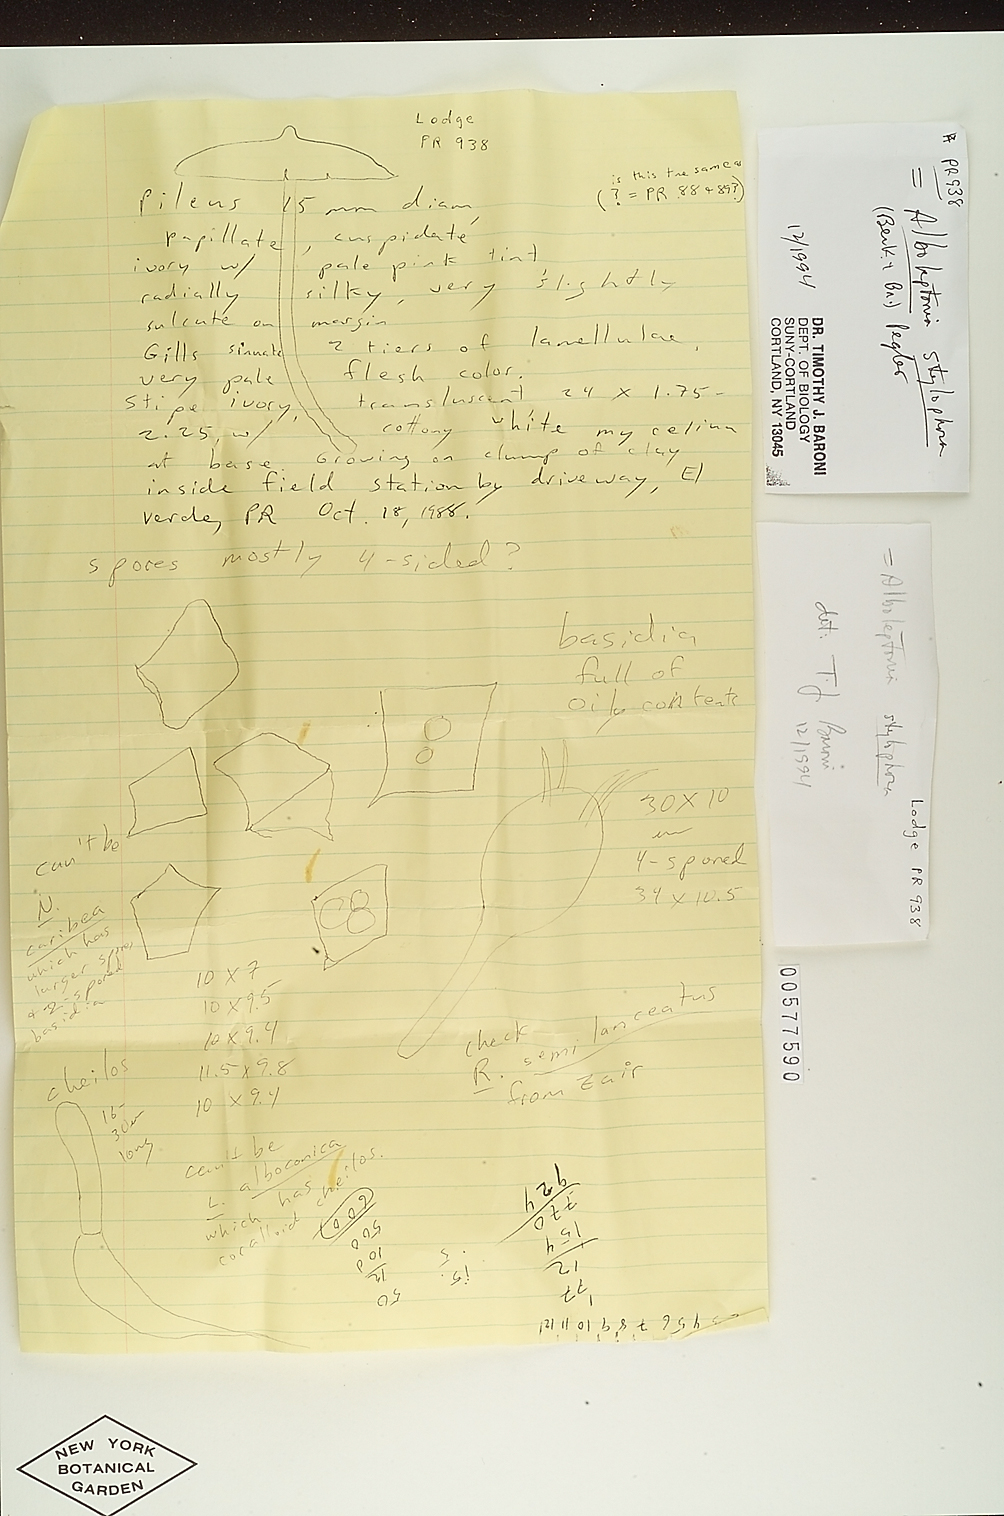 Lodge
PR 938
is this the same as
(? = PR 88 + 89?)
Pileus 15 mm diam,
papillate, cuspidate
ivory w/ pale pink tint
radially silky, very slightly
sulcate on margin
Gills sinuate 2 tiers of lamellulae,
very pale flesh color.
Stipe ivory, transluscent 24 x 1.75-
2.25, w/ cottony white mycelium
at base. Growing on clump of clay
inside field station by driveway, El
Verde, PR Oct. 18, 1988.
spores mostly 4-sided?
basidia
full of
oily contents
30 X 10
um
4-spored
34 x 10.5
can't be
N.
caribea
which has
larger spores
+ 2-spored
basidia
10 x 7
10 x 9.5
10 x 9.4
11.5 x 9.8
10 x 9.4
check
R. semilanceatus
from Zair
cheilos
16-
30um
long
can't be
L. alboconica
which has
coralloid cheilos.
600
500
100
12
50
15.
5
924
770
154
12
77
4 5 6 7 8 9 10 11 12
# PR 938
= Alboleptonia stylophora
(Berk. & Br.) Pegler
12/1994
DR. TIMOTHY J. BARONI
DEPT. OF BIOLOGY
SUNY-CORTLAND
CORTLAND, NY 13045
= Alboleptonia stylophora
det. T. J. Baroni
12/1994
Lodge PR 938
00577590
NEW YORK
BOTANICAL
GARDEN